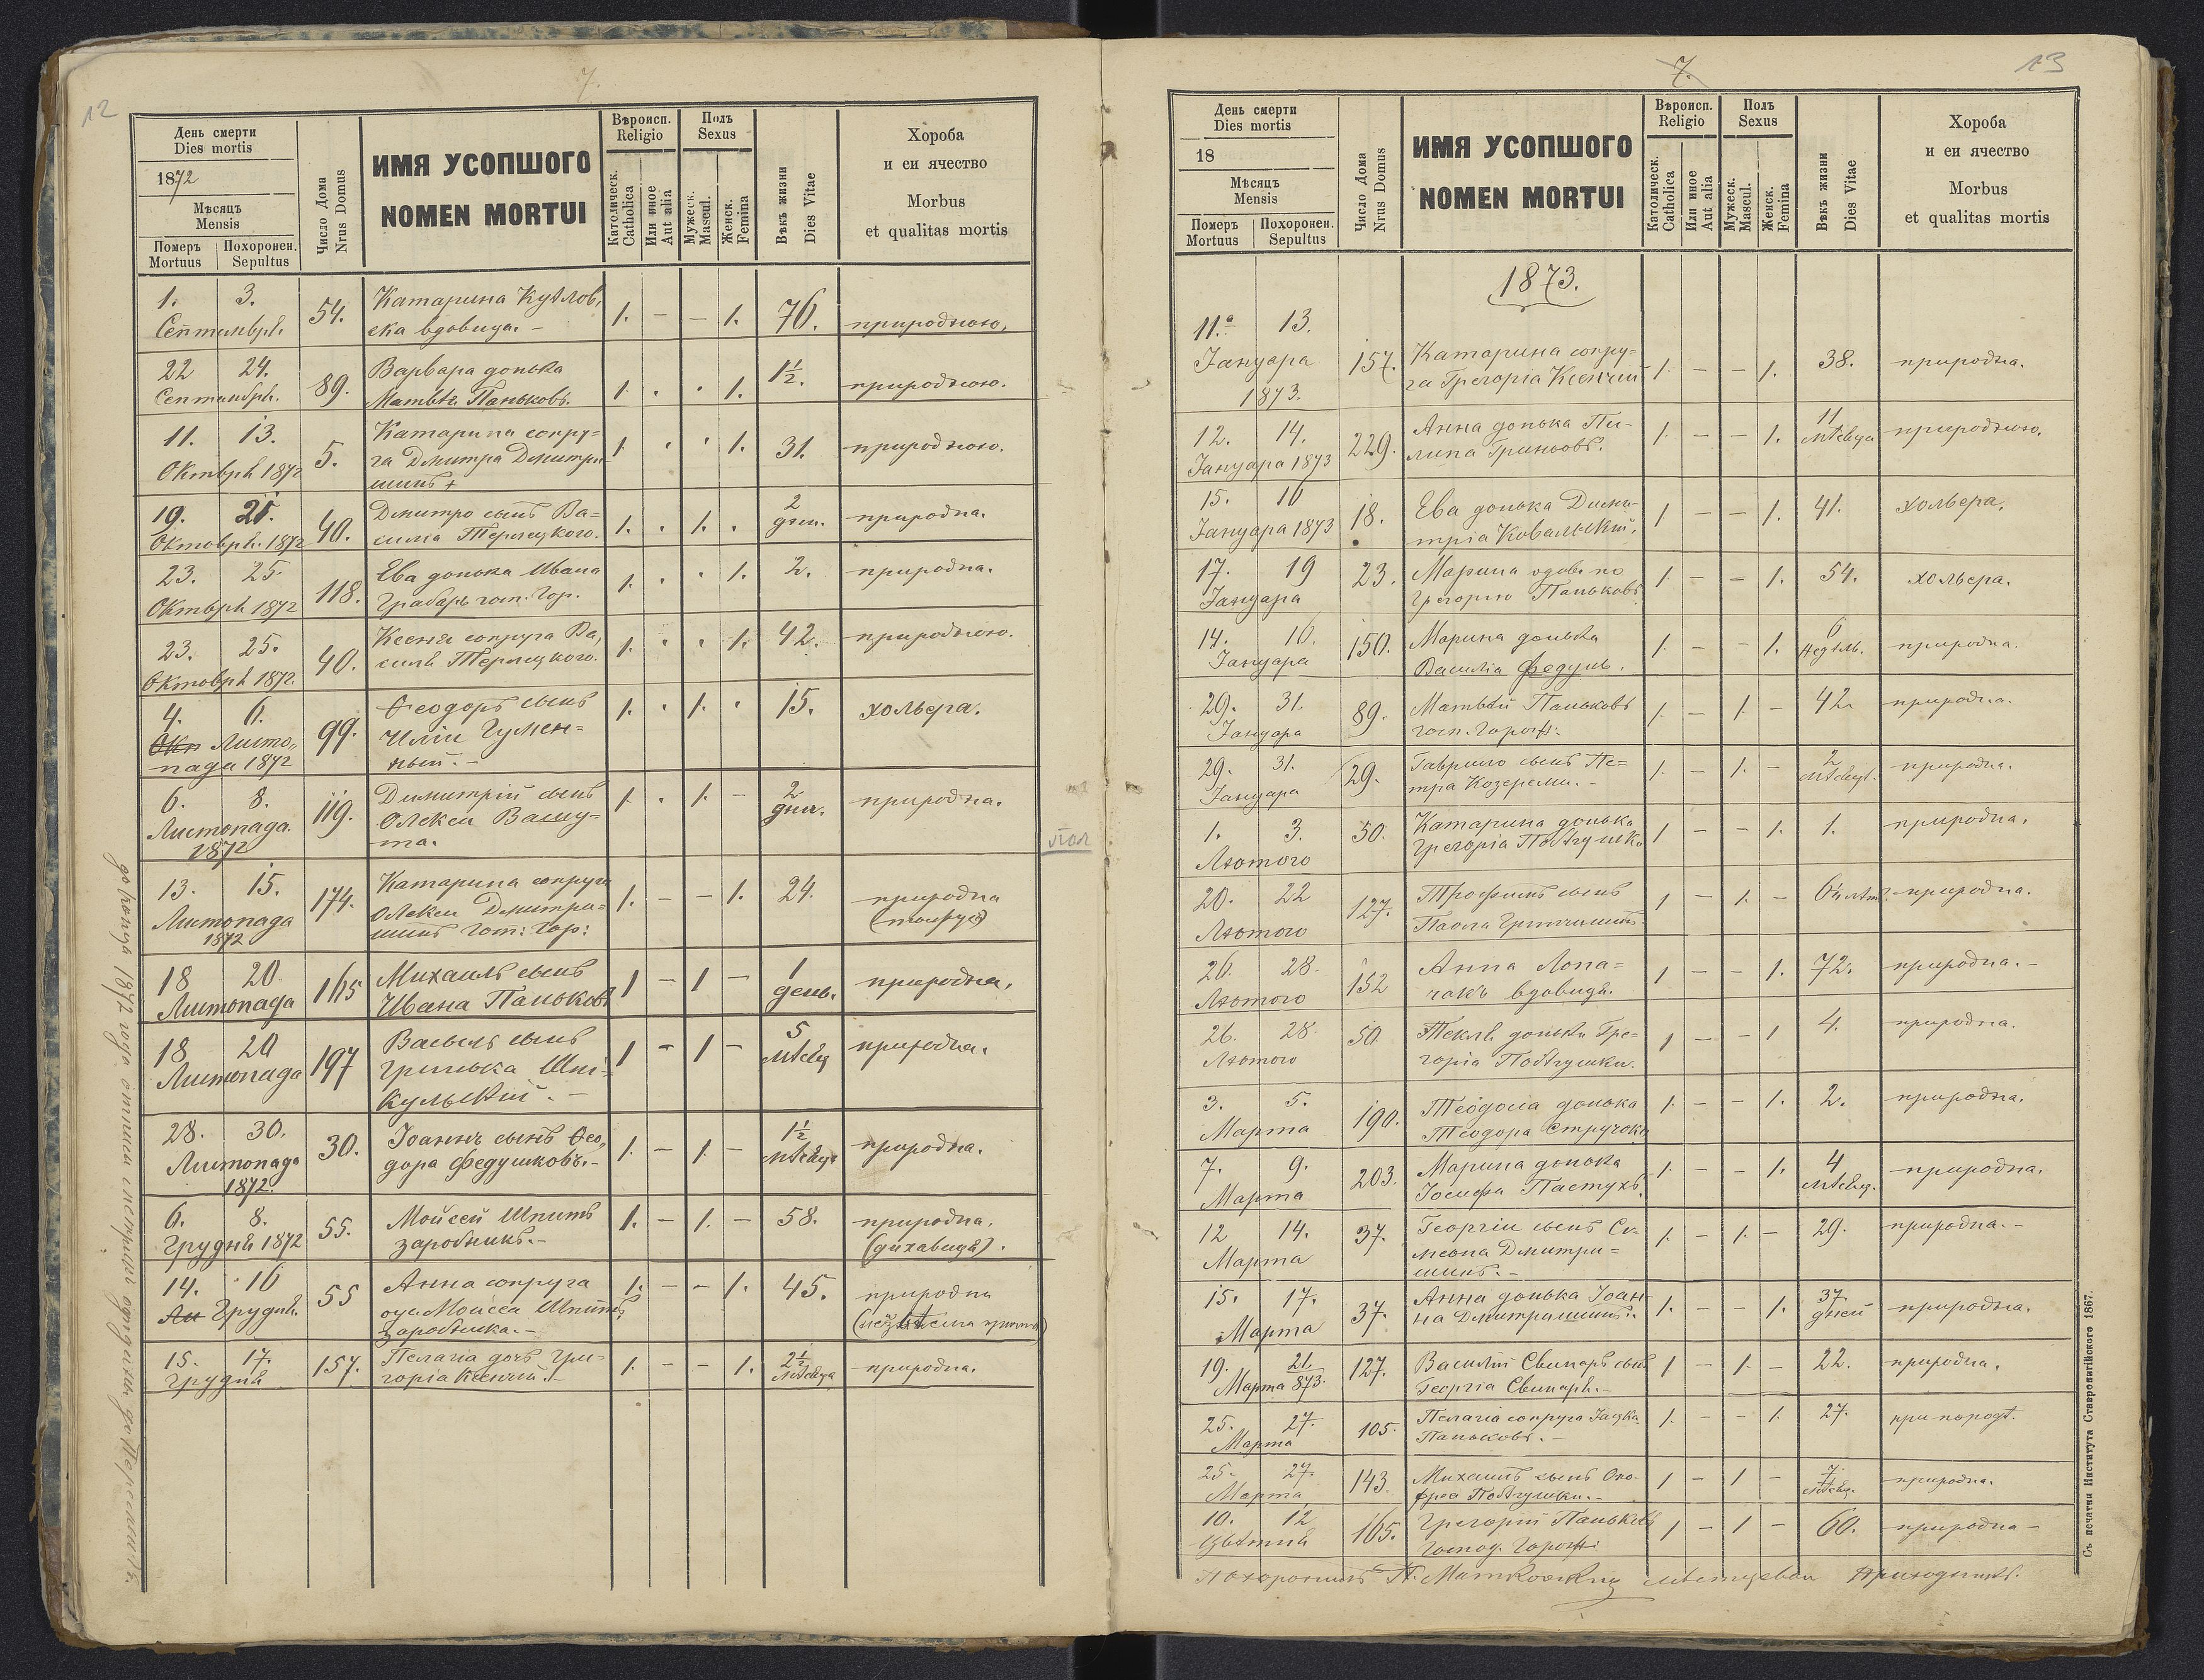 12
7.
День смерти
Dies mortis
1872
Мѣсяцъ
Mensis
Померъ
Mortuus
Похоронен.
Sepultus
Число Дома
Nrus Domus
ИМЯ УСОПШОГО
NOMEN MORTUI
Вѣроисп.
Religio
Католическ.
Catholica
Или иное
Aut alia
Полъ
Sexus
Мужеск.
Mascul.
Женск.
Femina
Вѣкъ жизни
Dies Vitae
Хороба
и еи ячество
Morbus
et qualitas mortis
1. 3. 54. Катарина
ска вдовица. – 1. – – 1. 76. природною.
22 24. 89. Варвара донька 1½.
Матвѣя Паньковъ. 1. . . 1. природною.
11. 13. 5. Катарина супру=
га Дмитра Дмитри- 1. . . 1. 31. природною.
Октябрѣ 1872
шинъ
19. 21. 40. Дмитро сынъ Ва= 2
Октоврѣ. 1872 силія Терлецкого. 1. . 1. . дни. природна.
23. 25. 118. Ева донька Ивана 1. . . 1. 2. природна.
Октоврѣ 1872 Грабаръ госп. Гор.
23. 25. 40. Ксенія супруга Ва,
Октоврѣ 1872. силя Терлецкого. 1. . . 1. 42. природною.
4. 6. 99. Ѳеодоръ сынъ 1. . 1. . 15. хольера.
Листо„ Илии Гумен=
пада 1872 ный. –
6. 8. 119. Димитрій сынъ 1. . 1. – 2 природна.
Листопада. Олекси Вашу- дни.
1872 та.
13. 15. 174. Катарина супруга
Листопада Олекси Дмитри= 1. – – 1. 24. природна
1872 шинъ госп: Гор:
18 20. 165 Михаилъ сынъ 1 – 1 – 1
Листопада Ивана Паньковъ день. природна.
18 20 197 Василь сынъ 1 – 1 – 5
Листопада Гринька Шпі- мѣсяц природна.
кульскій. –
28. 30. 30. Іоаннъ сынъ Ѳео„ 1½
Листопада дора Федушковъ. – 1. – 1. – мѣсяца природна.
1872.
6. 8. 55. Мойсей Шпитъ 1. – 1. – 58. природна.
Грудня 1872 заробникъ. – (дихавиця).
14. 16 55 Анна супруга 1. – – 1. 45. природна
Грудня. Мойсея Шпитъ
заробника. –
15. 17. 157. Пелагія дочь Гри= 1. – – 1. 2½ природна.
Грудня горія Ксенчій. – мѣсяца
13
7.
День смерти
Dies mortis
18
Мѣсяцъ
Mensis
Померъ
Mortuus
Похоронен.
Sepultus
Число Дома
Nrus Domus
ИМЯ УСОПШОГО
NOMEN MORTUI
Вѣроисп.
Religio
Католическ.
Catholica
Или иное
Aut alia
Полъ
Sexus
Мужеск.
Mascul.
Женск.
Femina
Вѣкъ жизни
Dies Vitae
Хороба
и еи ячество
Morbus
et qualitas mortis
1873.
11. 13.
Януара 157. Катарина супру= 1. – – 1. 38. природна.
1873. га Григорія Ксенчій
12. 14. 229. Анна донька Пи- 1. – – 1. 11 природною.
Януара 1873 липа мѣсяца
15. 16 18. Ева донька Дими- 1 – – 1. 41. хольера.
Януара 1873 трія Ковальскій.
17. 19 23. Марина вдова по 1. – – 1. 54. хольера.
Януара Григорію Паньковъ
14. 16. 150. Марина донька 1. – – 1. 6 природна.
Януара Василія Федунь. недѣль.
29. 31. 89. Матвій Паньковъ 1. – 1. – 42. природна.
Януара госп.
29. 31. 29. Гаврило сынъ Пе= 1. – 1. – 2 природна.
Януара тра
1. 3. 50. Катарина донька 1 – – 1. 1. природна.
Лютого Григорія
20. 22 127. Трофимъ сынъ 1 – 1. – природна.
Лютого Павла
26. 28. 152 Анна Лопа= 1 – – 1. 72. природна. –
Лютого вдовиця.
26. 28. 50. Текля донька Гри= 1 – – 1 4. природна.
Лютого горія
3. 5. 190. Теодосія донька 1. – – 1. 2. природна.
Марта Теодора
7. 9. 203. Марина донька 1. – – 1. 4 природна.
Марта Іосифа Пастухъ. мѣсяц.
12 14. 37. Георгій сынъ Си- 1. – 1. – 29. природна. –
Марта меона Дмитри=
шинъ. –
15. 17. 37. Анна донька Іоан- 1. – – 1. 37. природна.
Марта на Дмитришинъ. дней
19. 21. 127. Василій Свинаръ сынъ 1 – 1. – 22. природна.
Марта 873. Георгія Свинаря. –
25. 27. 105. Пелагія супруга Яцка 1. – – 1. 27. при породѣ.
Марта Паньковъ. –
25. 27. 143. Михаилъ сынъ Оно- 1 – 1 – 7. природна.
Марта фрея мѣсяц.
10. 12 165. Григорій Паньковъ 1 – 1 – 60. природна –
Цвѣтня господ.
Похоронилъ
Съ печатни Института Ставропигійского 1867.